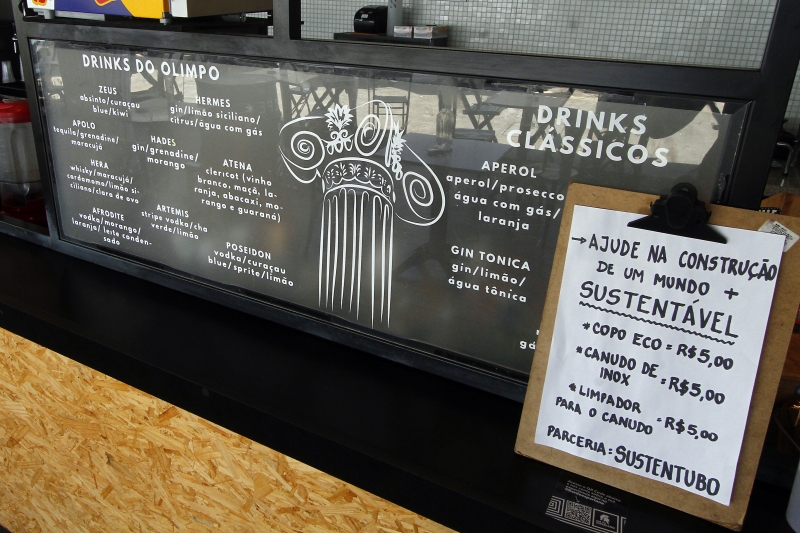 DRINKS DO OLIMPO
ZEUS
absinto/curaçau
blue/kiwi
HERMES
gin/limão siciliano/
citrus/água com gás
APOLO
tequila/grenadine/
maracujá
HADES
gin/grenadine/
morango
HERA
whisky/maracujá/
cardamomo/limão si-
ciliano/clara de ovo
ATENA
clericot (vinho
branco, maçã, la-
ranja, abacaxi, mo-
rango e guaraná)
AFRODITE
vodka/morango/
laranja/ leite conden-
sado
ARTEMIS
stripe vodka/cha
verde/limão
POSEIDON
vodka/curaçau
blue/sprite/limão
DRINKS
CLÁSSICOS
APEROL
aperol/prosecco
água com gás/
laranja
GIN TONICA
gin/limão/
água tônica
→AJUDE NA CONSTRUÇÃO
DE UM MUNDO +
SUSTENTÁVEL
*COPO ECO = R$5,00
*CANUDO DE
INOX = R$5,00
*LIMPADOR
PARA O CANUDO = R$5,00
PARCERIA: SUSTENTUBO